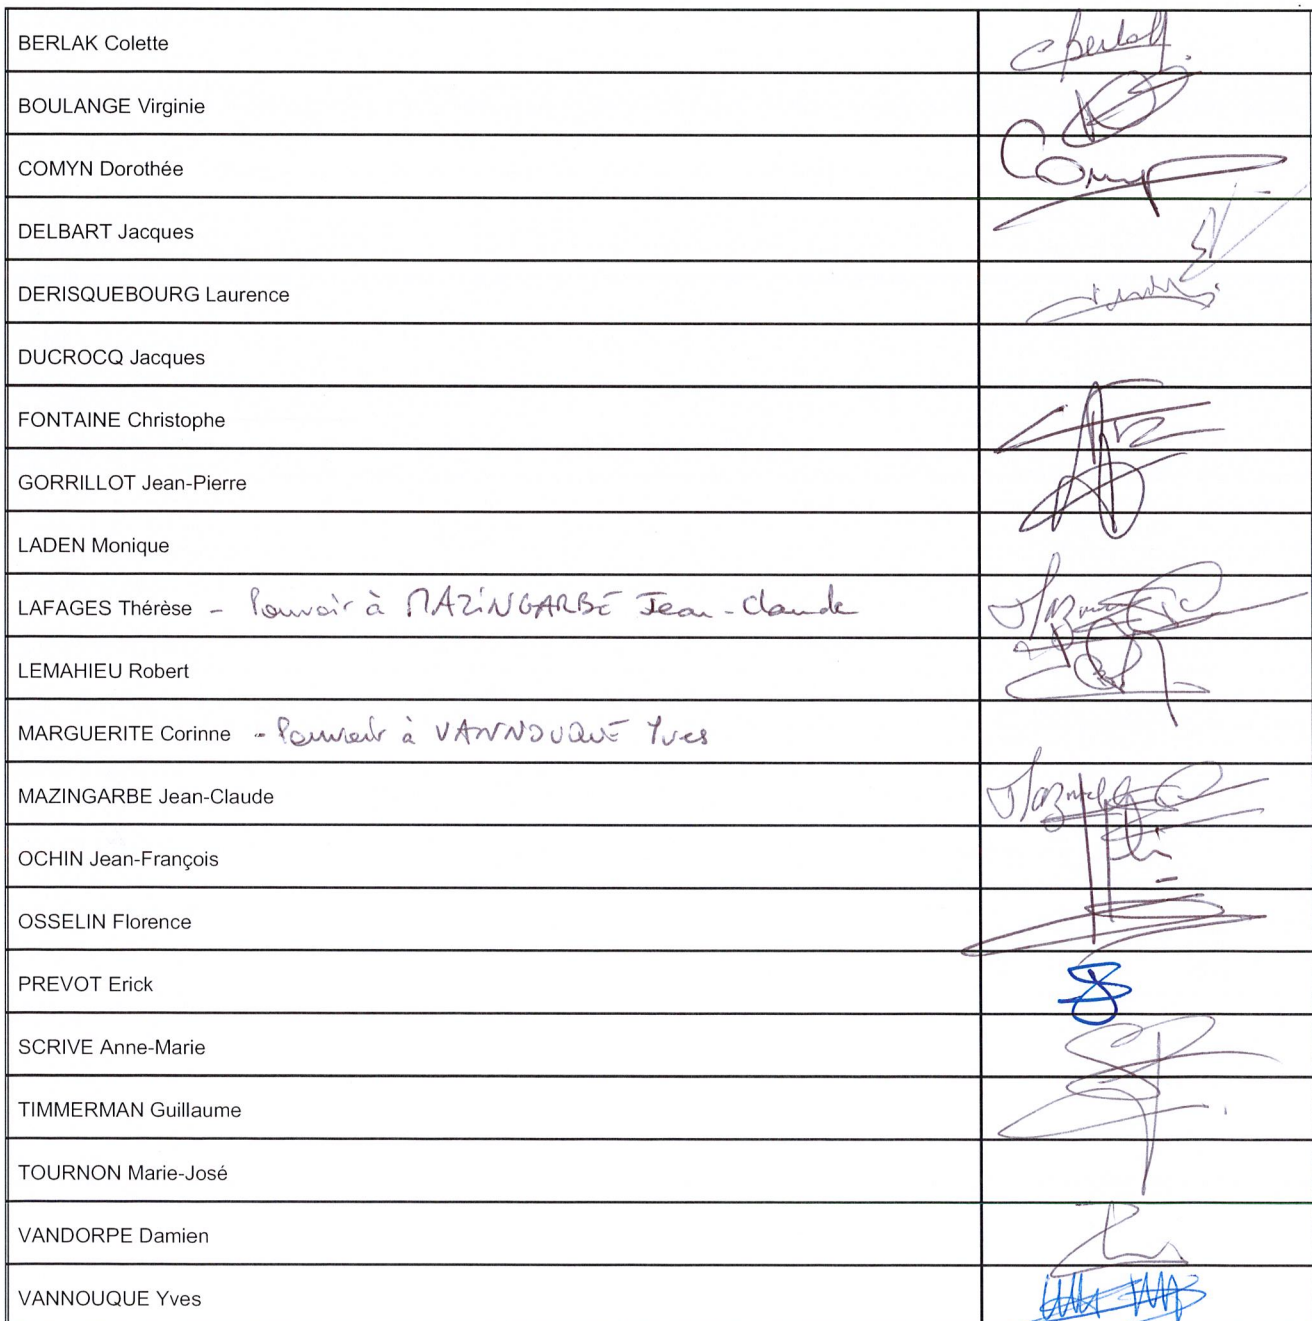 BERLAK Colette
BOULANGE Virginie
COMYN Dorothée
DELBART Jacques
DERISQUEBOURG Laurence
DUCROCQ Jacques
FONTAINE Christophe
GORRILLOT Jean-Pierre
LADEN Monique
LAFAGES Thérèse - Pouvoir à MAZINGARBE Jean-Claude
LEMAHIEU Robert
MARGUERITE Corinne - Pouvoir à VANNOUQUE Yves
MAZINGARBE Jean-Claude
OCHIN Jean-François
OSSELIN Florence
PREVOT Erick
SCRIVE Anne-Marie
TIMMERMAN Guillaume
TOURNON Marie-José
VANDORPE Damien
VANNOUQUE Yves